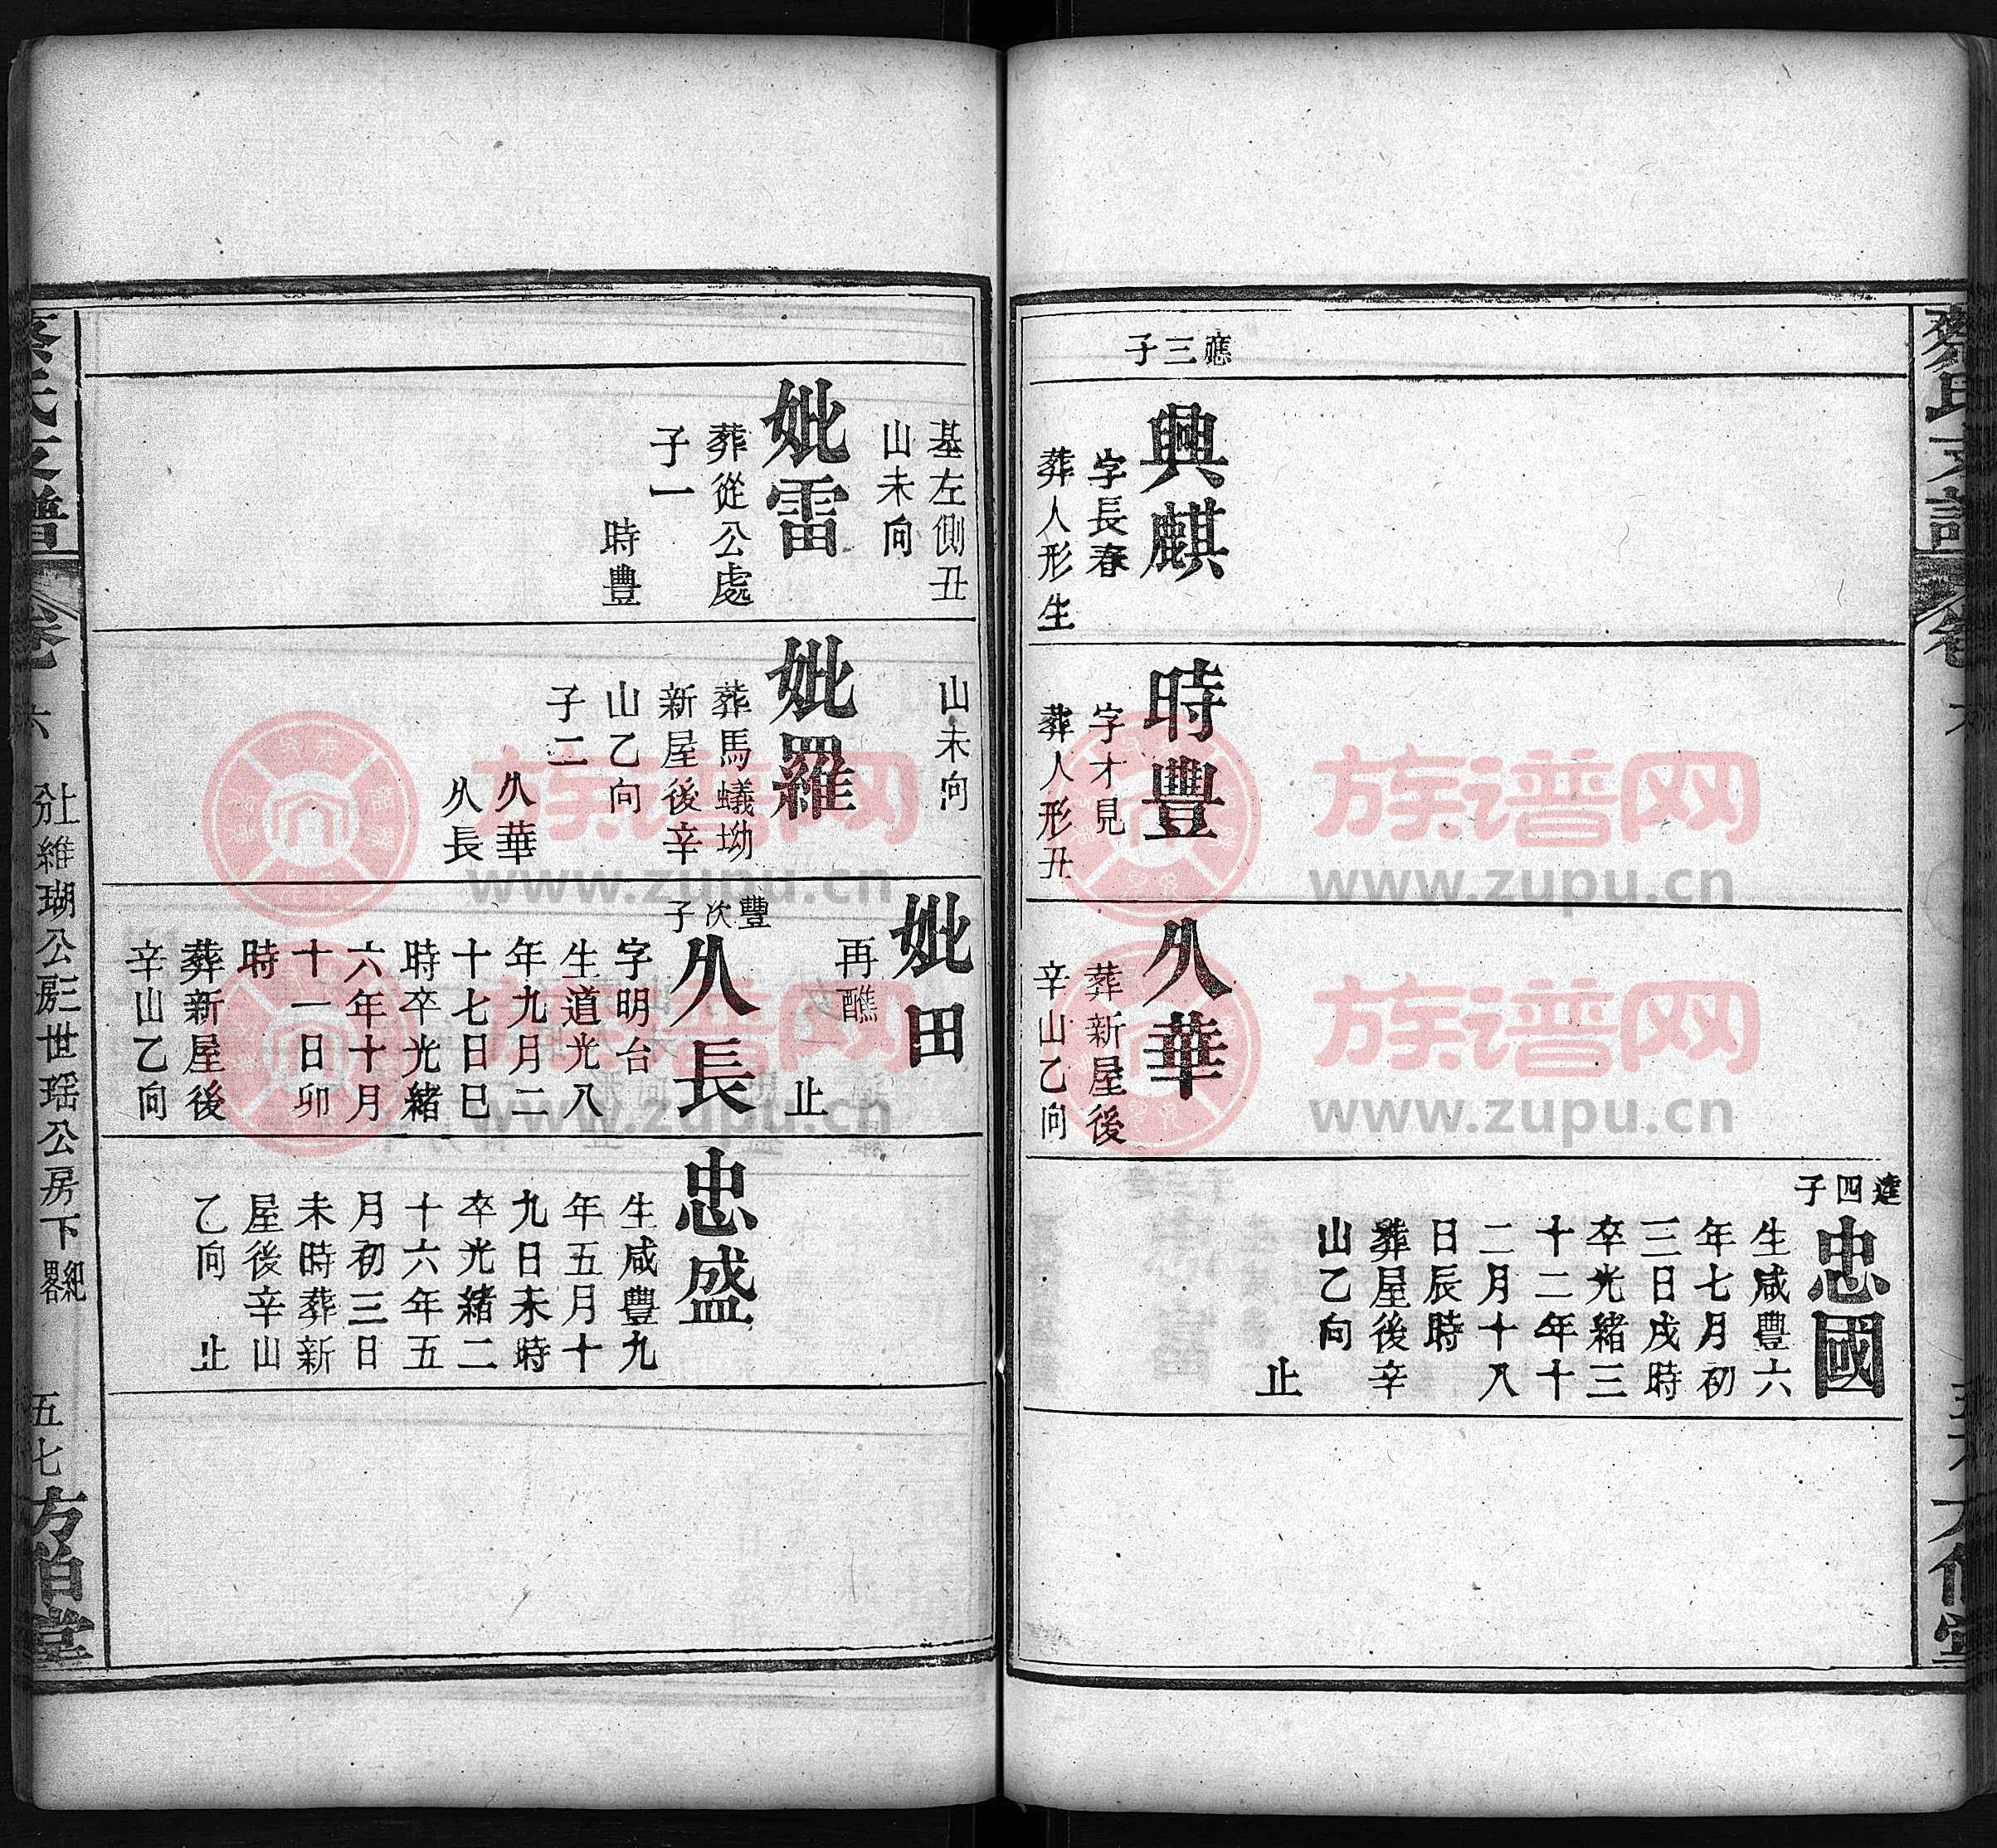 蔡氏支譜
卷
應三子
興麒
字長春
葬人形生
時豐
字才見
葬人形丑
久華
葬新屋後
辛山乙向
達四子
忠國
生咸豐六
年七月初
三日戌時
卒光緒三
十二年十
二月十八
日辰時
葬屋後辛
山乙向
止
基左側丑
山未向
妣雷
葬從公處
子一
時豐
山未向
妣羅
葬馬蟻坳
新屋後辛
山乙向
子二
久華
久長
妣田
再醮
止
豐次子
久長
字明台
生道光八
年九月二
十七日巳
時卒光緒
六年十月
十一日卯
時
葬新屋後
辛山乙向
忠盛
生咸豐九
年五月十
九日未時
卒光緒二
十六年五
月初三日
未時葬新
屋後辛山
乙向
止
蔡氏支譜
卷六
上分維瑚公房三世瑶公房下紀畧
五七
方伯堂
族谱网
www.zupu.cn
族谱网
www.zupu.cn
族谱网
www.zupu.cn
族谱网
www.zupu.cn